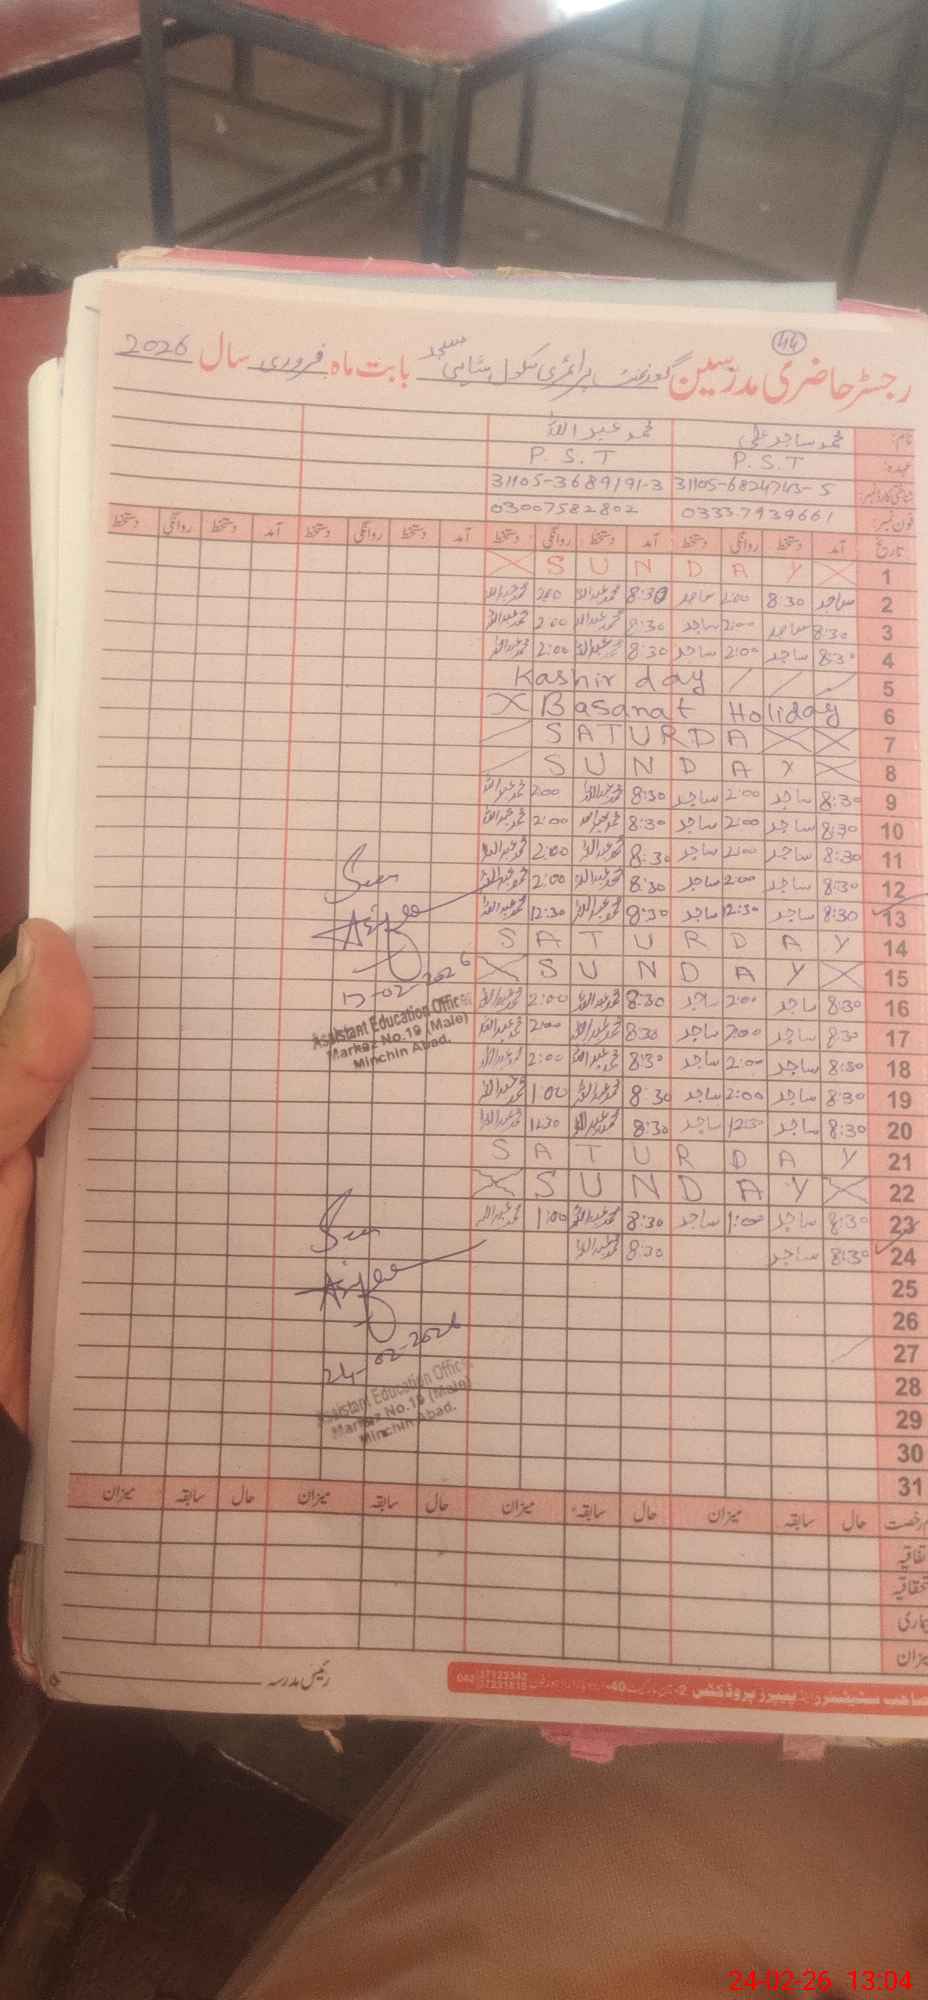 44
رجسٹر حاضری مدرسین گورنمنٹ پرائمری سکول مسجد بابت ماہ فروری سال 2026
نام: محمد ساجد علی محمد عبداللہ
عہدہ: P.S.T P.S.T
شناختی کارڈ نمبر: 31105-6824743-5 31105-3689191-3
فون نمبر: 0333-7939661 03007582802
تاریخ آمد دستخط روانگی دستخط آمد دستخط روانگی دستخط آمد دستخط روانگی دستخط آمد دستخط روانگی دستخط
1 SUNDAY
2 ساجد 8:30 2:00 ساجد 8:30 محمد عبداللہ 2:00 محمد عبداللہ
3 8:30 ساجد 2:00 ساجد 8:30 محمد عبداللہ 2:00 محمد عبداللہ
4 8:30 ساجد 2:00 ساجد 8:30 محمد عبداللہ 2:00 محمد عبداللہ
5 Kashir day
6 Basanat Holiday
7 SATURDA
8 SUNDAY
9 8:30 ساجد 2:00 ساجد 8:30 محمد عبداللہ 2:00 محمد عبداللہ
10 8:30 ساجد 2:00 ساجد 8:30 محمد عبداللہ 2:00 محمد عبداللہ
11 8:30 ساجد 2:00 ساجد 8:30 محمد عبداللہ 2:00 محمد عبداللہ
12 8:30 ساجد 2:00 ساجد 8:30 محمد عبداللہ 2:00 محمد عبداللہ
13 8:30 ساجد 12:30 ساجد 8:30 محمد عبداللہ 12:30 محمد عبداللہ
14 SATURDAY
15 SUNDAY
16 8:30 ساجد 2:00 ساجد 8:30 محمد عبداللہ 2:00 محمد عبداللہ
17 8:30 ساجد 2:00 ساجد 8:30 محمد عبداللہ 2:00 محمد عبداللہ
18 8:30 ساجد 2:00 ساجد 8:30 محمد عبداللہ 2:00 محمد عبداللہ
19 8:30 ساجد 2:00 ساجد 8:30 محمد عبداللہ 1:00 محمد عبداللہ
20 8:30 ساجد 12:30 ساجد 8:30 محمد عبداللہ 12:30 محمد عبداللہ
21 SATURDAY
22 SUNDAY
23 8:30 ساجد 1:00 ساجد 8:30 محمد عبداللہ 1:00 محمد عبداللہ
24 8:30 ساجد 8:30 محمد عبداللہ
25
26
27
28
29
30
31
Seen
-02-2026
Assistant Education Officer
Markaz No.19 (Male)
Minchin Abad.
Seen
24-02-2026
Assistant Education Officer
Markaz No.19 (Male)
Minchin Abad.
رخصت حال سابقہ میزان حال سابقہ میزان حال سابقہ میزان حال سابقہ میزان
تفاقیہ
تحقاقیہ
یماری
یزان
رئیس مدرسہ
صاحب سٹیشنرز اینڈ پیپرز پروڈکٹس 2- 40-
042 37123342
24-02-26 13:04